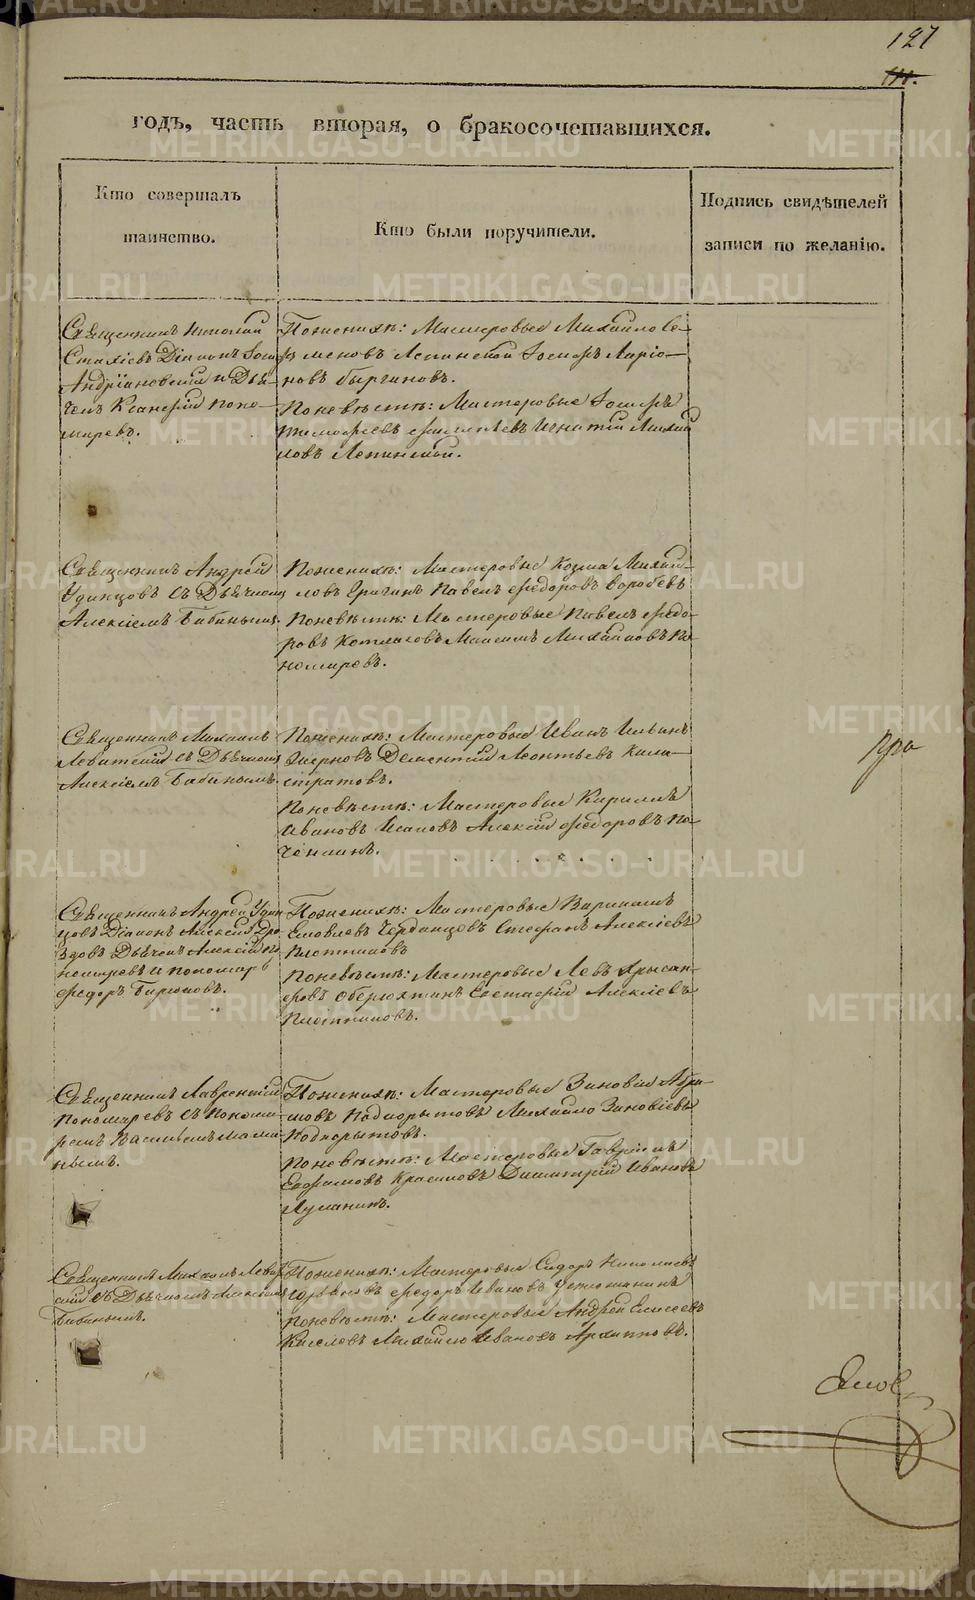 127
годъ, часть вторая, о бракосочетавшихся.
Кто совершалъ
таинство.
Кто были поручители.
Подпись свидѣтелей
записи по желанію.
Священникъ Николай
Стахіевъ Діаконъ
Андріановскій и Дья-
чекъ Ксенофій Поно-
маревъ.
По женихѣ: Мастеровые Михайло Се-
меновъ Лепинской Іосифъ Ларіо-
новъ
По невѣстѣ: Мастеровые Іосифъ
Тимофѣевъ Игнатій Михай
ловъ Лепинской.
Священникъ Андрей
Удинцовъ съ Дьячкомъ
Алексіемъ Бабинымъ.
По женихѣ: Мастеровые Козма Михай-
ловъ Павелъ Федоровъ Воробьевъ
По невѣстѣ: Мастеровые Павелъ Федо-
ровъ Котласовъ Максимъ Михайловъ По
номаревъ.
Священникъ Михаилъ
Левитскій съ Дьячкомъ
Алексіемъ Бабинымъ.
По женихѣ: Мастеровые Иванъ Ильинъ
Дементій Леонтьевъ Кали-
стратовъ.
По невѣстѣ: Мастеровые Кириллъ
Ивановъ Исаковъ Алексій Федоровъ По-
Священникъ Андрей Удин
цовъ Діаконъ Алексій Дро
здовъ Дьячекъ Алексій По
номаревъ и пономарь
Федоръ Бирюковъ.
По женихѣ: Мастеровые Варламъ
Яковлевъ Чердынцовъ Стефанъ Алексіевъ
Плотниковъ
По невѣстѣ: Мастеровые Левъ Хрисан-
фовъ Оберюхтинъ Евстафій Алексіевъ
Плотниковъ.
Священникъ Лаврентій
Пономаревъ съ Понома-
ремъ Васильемъ Мами-
нымъ.
По женихѣ: Мастеровые Зиновій Абра-
мовъ Подкорытовъ Михайло Зиновіевъ
Подкорытовъ.
По невѣстѣ: Мастеровые Гавріилъ
Ефремовъ Красиковъ Димитрій Ивановъ
Лузанинъ.
Священникъ Михаилъ Левит
скій съ Дьячкомъ Алексіемъ
Бабинымъ.
По женихѣ: Мастеровые Сидоръ Николаевъ
Федоръ Ивановъ Устюжанинъ
По невѣстѣ: Мастеровые Андрей Елисеевъ
Киселевъ Михайло Ивановъ Архиповъ.
METRIKI.GASO-URAL.RU